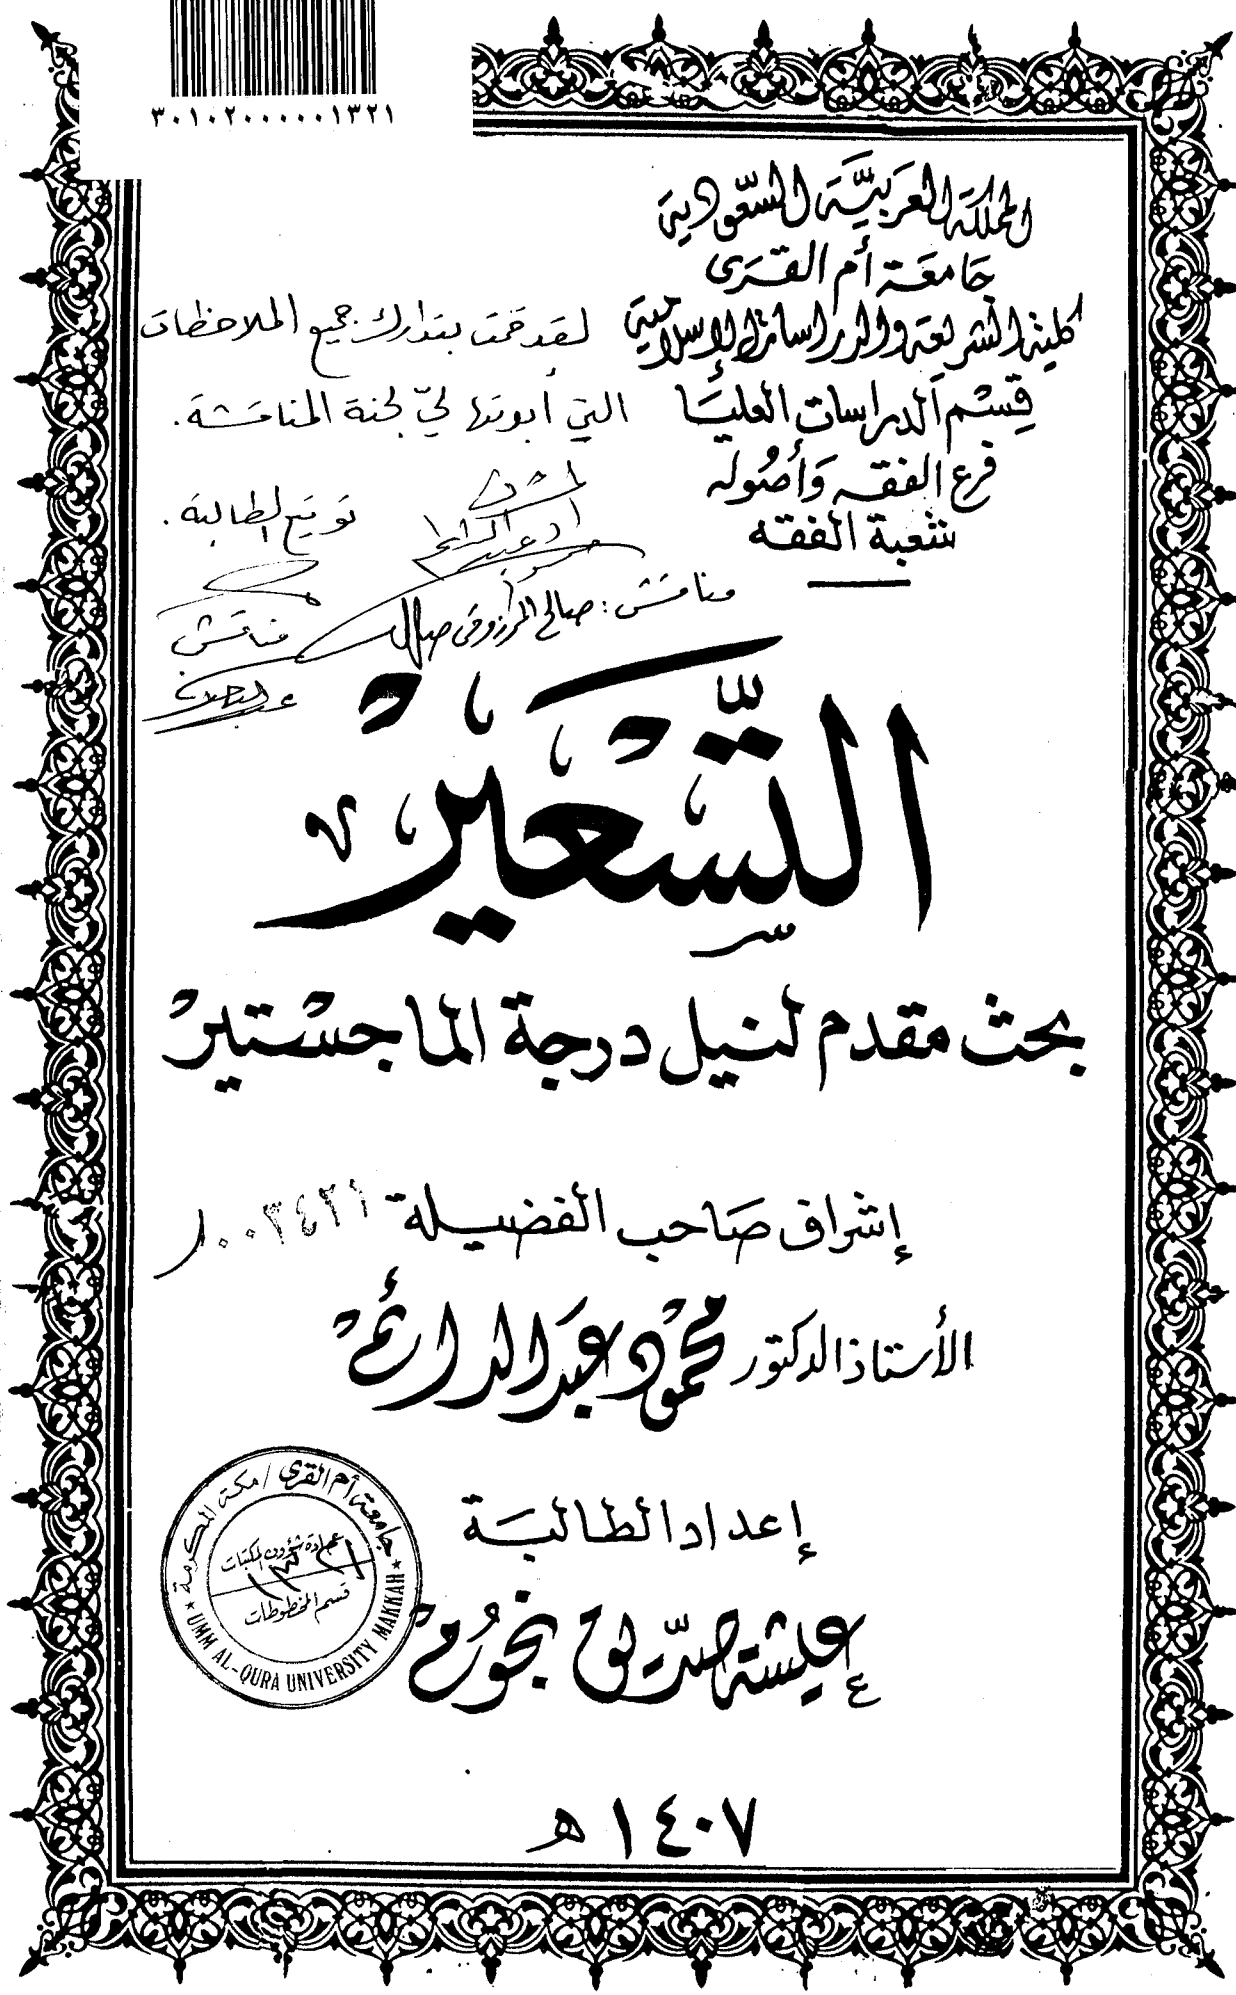 ٣٠١٠٢٠٠٠٠٠١٣٢١
المملكة العربية السعودية
جامعة أم القرى
كلية الشريعة والدراسات الإسلامية
قسم الدراسات العليا
فرع الفقه وأصوله
شعبة الفقه
لقد قمت بتدارك جميع الملاحظات
التي أبدتها لي لجنة المناقشة.
توقيع الطالبة.
المشرف
أ د عبد الدائم
مناقش: صالح المرزوقي
مناقش
التسعير
بحث مقدم لنيل درجة الماجستير
إشراف صاحب الفضيلة
٠٠٣٤٢١
الأستاذ الدكتور محمود عبد الدائم
إعداد الطالبة
عيشة صديق نجوم
١٤٠٧ هـ
جامعة أم القرى / مكة المكرمة
عمادة شؤون المكتبات
قسم المخطوطات
UMM AL-QURA UNIVERSITY MAKKAH